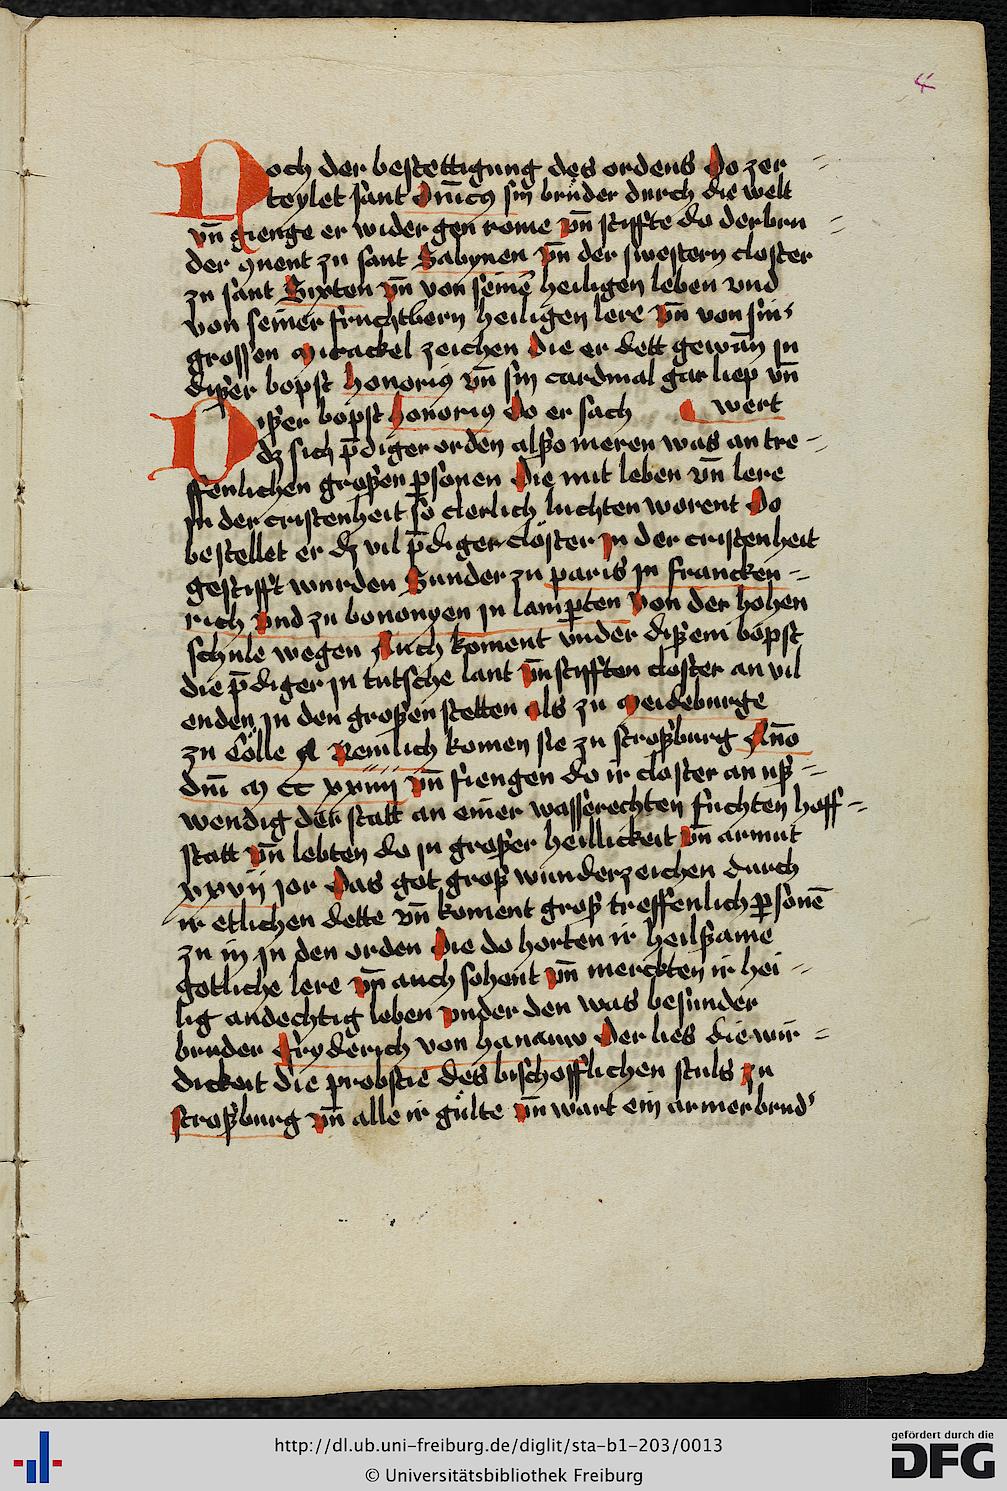 4
Noch der bestettigung des ordens Do zer
teylet sant Dm̄icꝯ sin brůder durch die welt
vn̄ gienge er wider gen rome vn̄ stiffte do der bru
der ꝯuent zu sant Sabynen vn̄ der swestern closter
zu sant Sixten vn̄ von seinē heiligen leben vnd
von seiner fruchtbern heiligen lere vn̄ von sin'
grossen mirackel zeichen Die er dett gewan̄ in
dißer bopst honoriꝯ vn̄ sin cardinal gar liep vn̄
Dißer bopst honoriꝯ Do er sach wert
dz sich p̄diger orden alßo meren was an tre
ffenlichen großen ꝑsonen Die mit leben vn̄ lere
jn der cristenheit so clerlich luchten worent Do
bestellet er dz vil p̄diger clöster jn der cristenheit
gestifft wurden Sunder zu paris jn francken
rich vnd zu bononyen jn lamꝑten von der hohen
schule wegen Auch koment vnder dißem bopst
die p̄diger jn tutsche lant vn̄ stifften closter an vil
enden jn den großen stetten als zu meideburge
zu Cölle Nemlich komen sie zu stroßburg An̄o
dni̅ m cc xxiiij vn̄ fiengen do ir closter an uß
wendig der statt an einer wasserechten fuchten hoff
statt vn̄ lebten do jn großer heillickeit vn̄ armut
xxvij jor Das got groß wunderzeichen durch
ir etlichen dette vn̄ koment groß treffenlich ꝑsonē
zu in jn den orden Die do horten ir heilßame
gotliche lere vn̄ auch sohent vn̄ merckten ir hei
lig andechtig leben vnder den was besunder
bruder Fryderich von hanauw Der lies die wir
dickeit die probstie des bischofflichen stuls zu
stroßburg vn̄ alle ir gülte vn̄ wart ein armer brud'
http://dl.ub.uni-freiburg.de/diglit/sta-b1-203/0013
© Universitätsbibliothek Freiburg
gefördert durch die
DFG